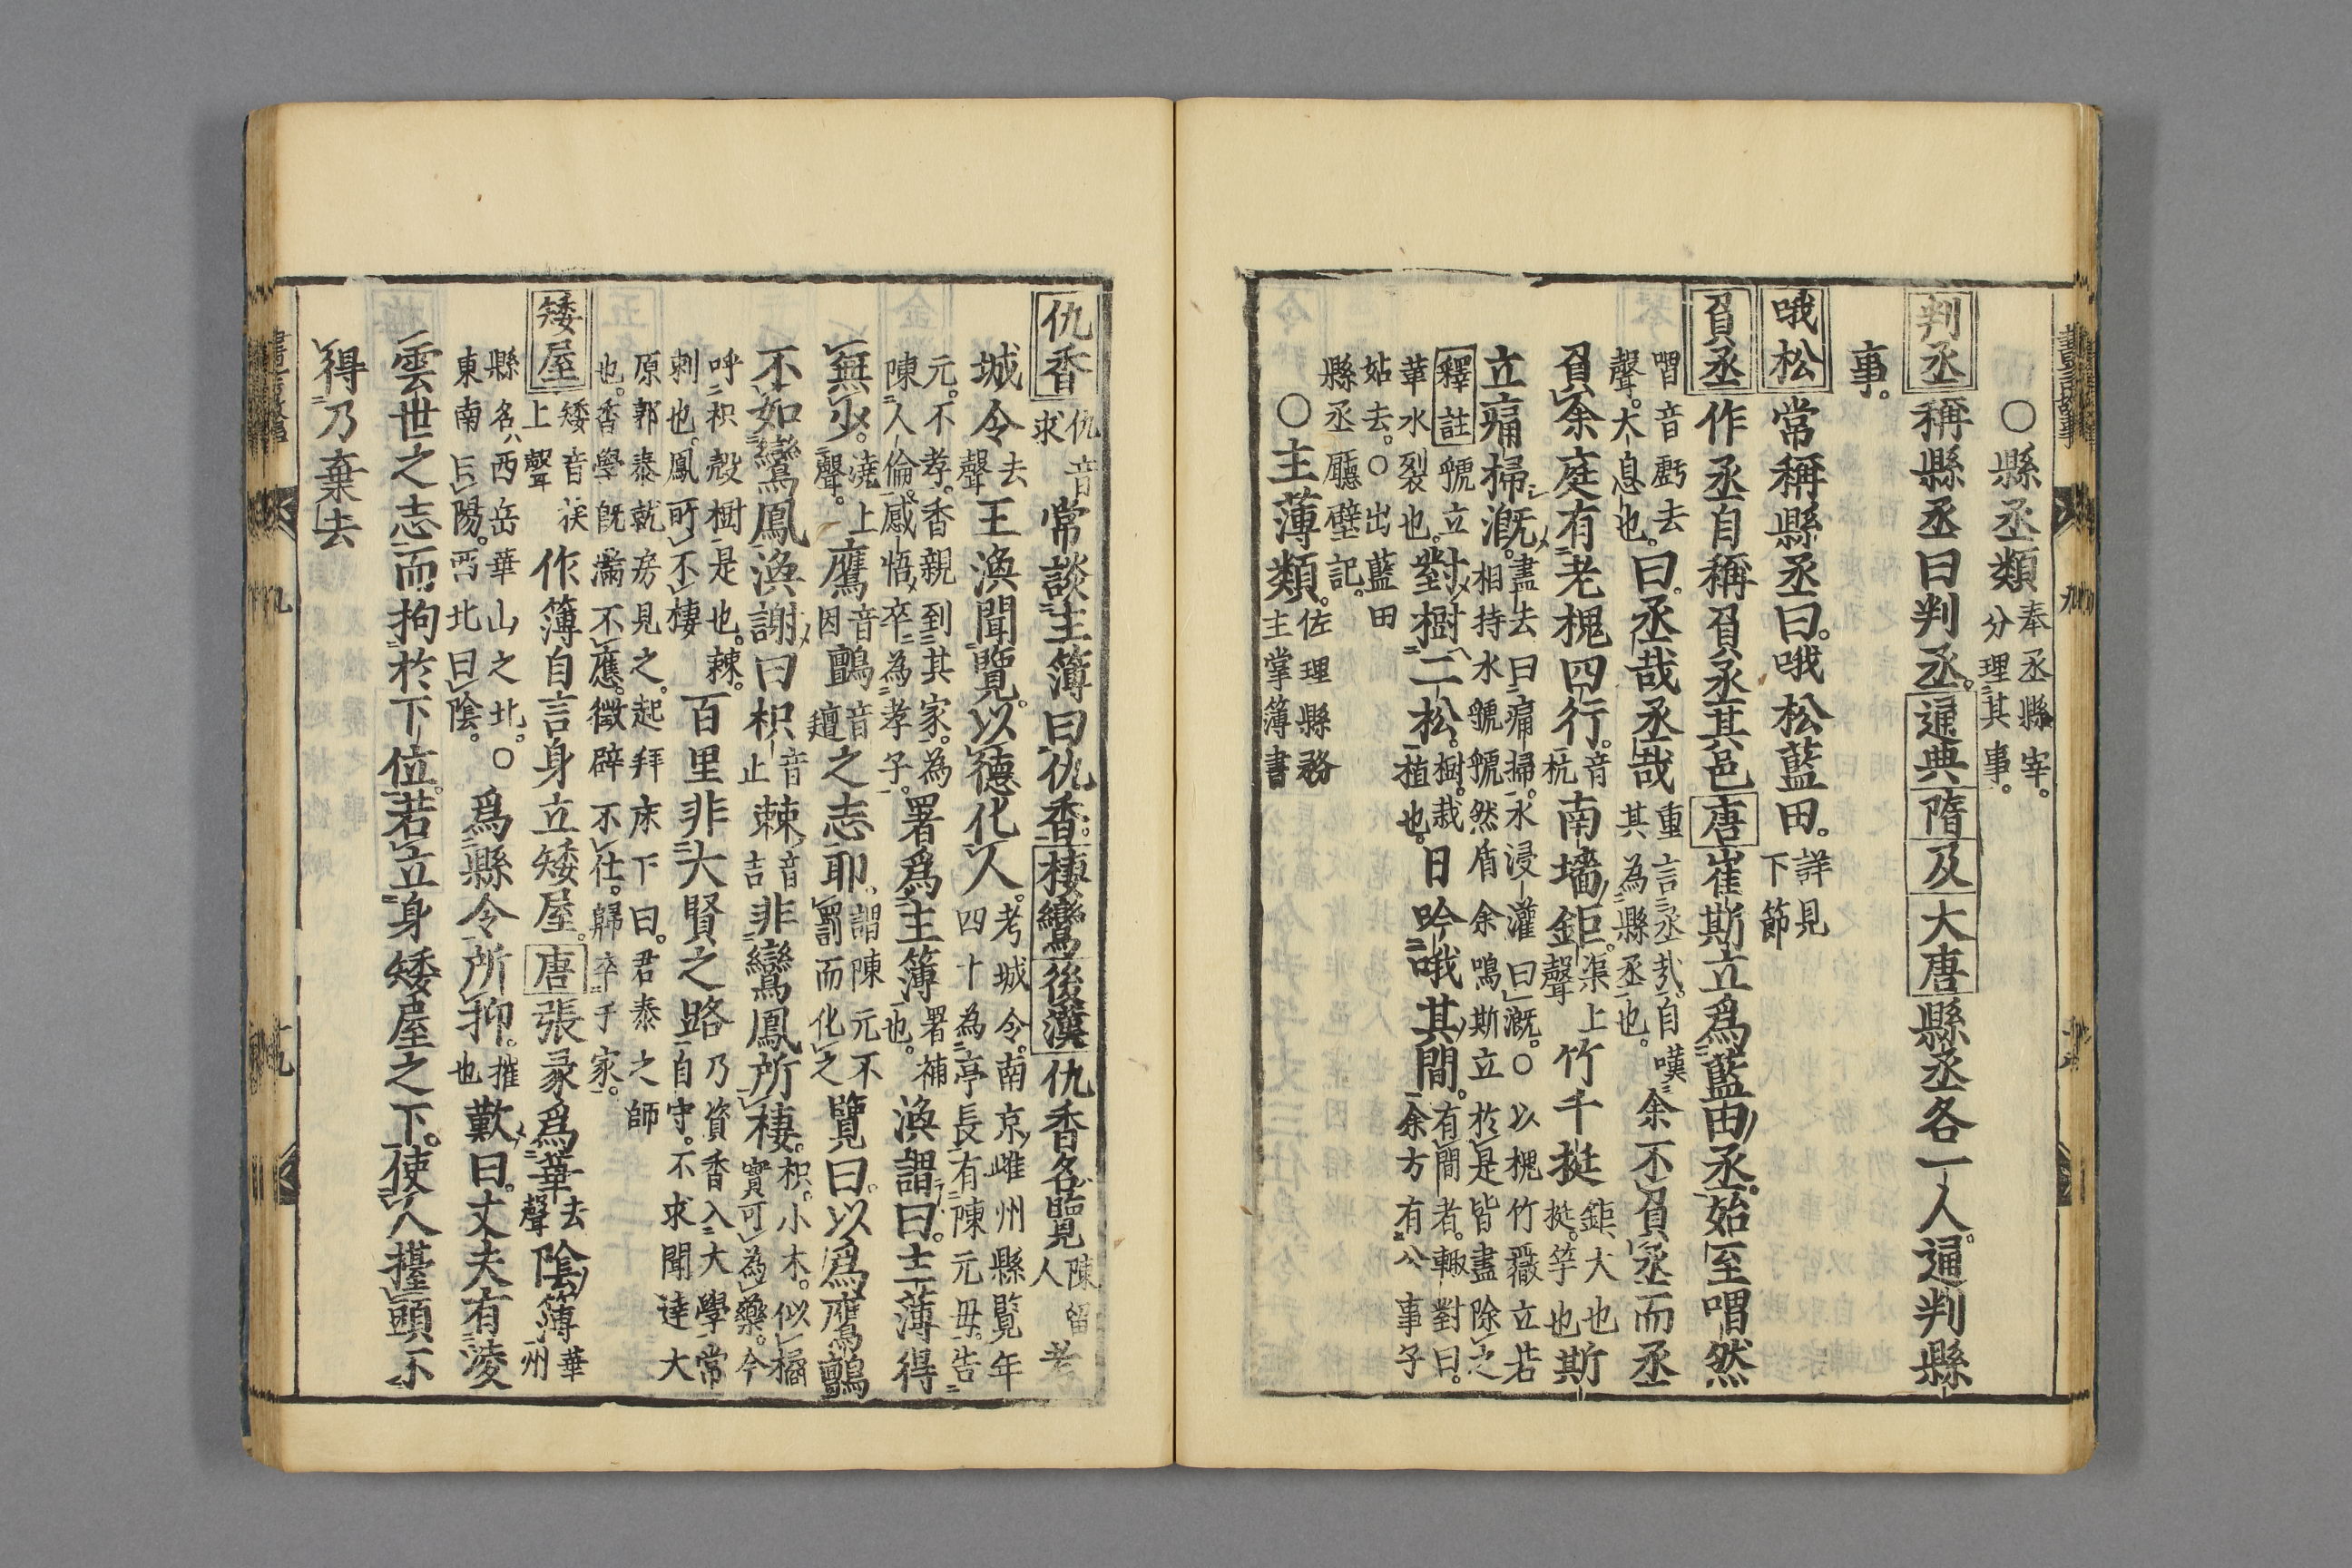 ○縣丞類奉丞縣宰。分理其事。
判丞稱縣丞曰判丞。通典隋及大唐縣丞各一人。通判縣
事。
哦松常稱縣丞曰。哦松藍田。詳見下節
負丞作丞自稱負丞其邑唐崔斯立爲藍田丞。始至喟然
喟音虧去聲。大息也。曰。丞哉丞哉重言丞哉。自嘆其為縣丞也。余不負丞而丞
負余庭有老槐四行。音杭南墻鉅。渠上聲竹千挺鉅大也挺。竿也斯
立痛掃漑。盡去曰痛掃。水浸灌曰漑。○以槐竹蕪立若相持水虢虢然盾余鳴斯立於是皆盡除之
釋註虢立華水裂也。對樹二松。樹。栽植也。日吟哦其間。有間者。輙對曰。余方有公事子
姑去。○出藍田
縣丞廳壁記。
○主薄類。佐理縣務主掌簿書
仇香仇音求常談主簿曰仇香。棲鸞後漢仇香名覽陳留人考
城令去聲王渙聞覽。以德化人。考城令。南京睢州縣覽年四十為亭長有陳元毋。告
元。不孝。香親到其家。為陳人倫。感悟卒為孝子。署爲主簿署補也。渙謂曰。主薄得
無少。澆上聲。鷹音因鸇音邅之志耶。謂陳元不罰而化之覽曰。以爲鷹鸇
不如鸞鳳渙謝曰枳音止棘音吉非鸞鳳所棲。枳。小木。似橘實可為藥。今
呼枳殼樹是也。棘。刺也。鳳所不棲百里非大賢之路乃資香入大學常自守。不求聞達大
原郭泰就房見之。起拜床下曰。君泰之師也。香學旣滿不應。徵辟不仕。歸卒于家。
矮屋矮音挨上聲作簿自言身立矮屋。唐張彖爲華去聲陰簿華州
縣名西岳華山之北。○東南曰陽。西北曰陰。爲縣令所抑。摧也歎曰。丈夫有淩
雲世之志而拘於下位。若立身矮屋之下。使人擡頭不
得乃棄去